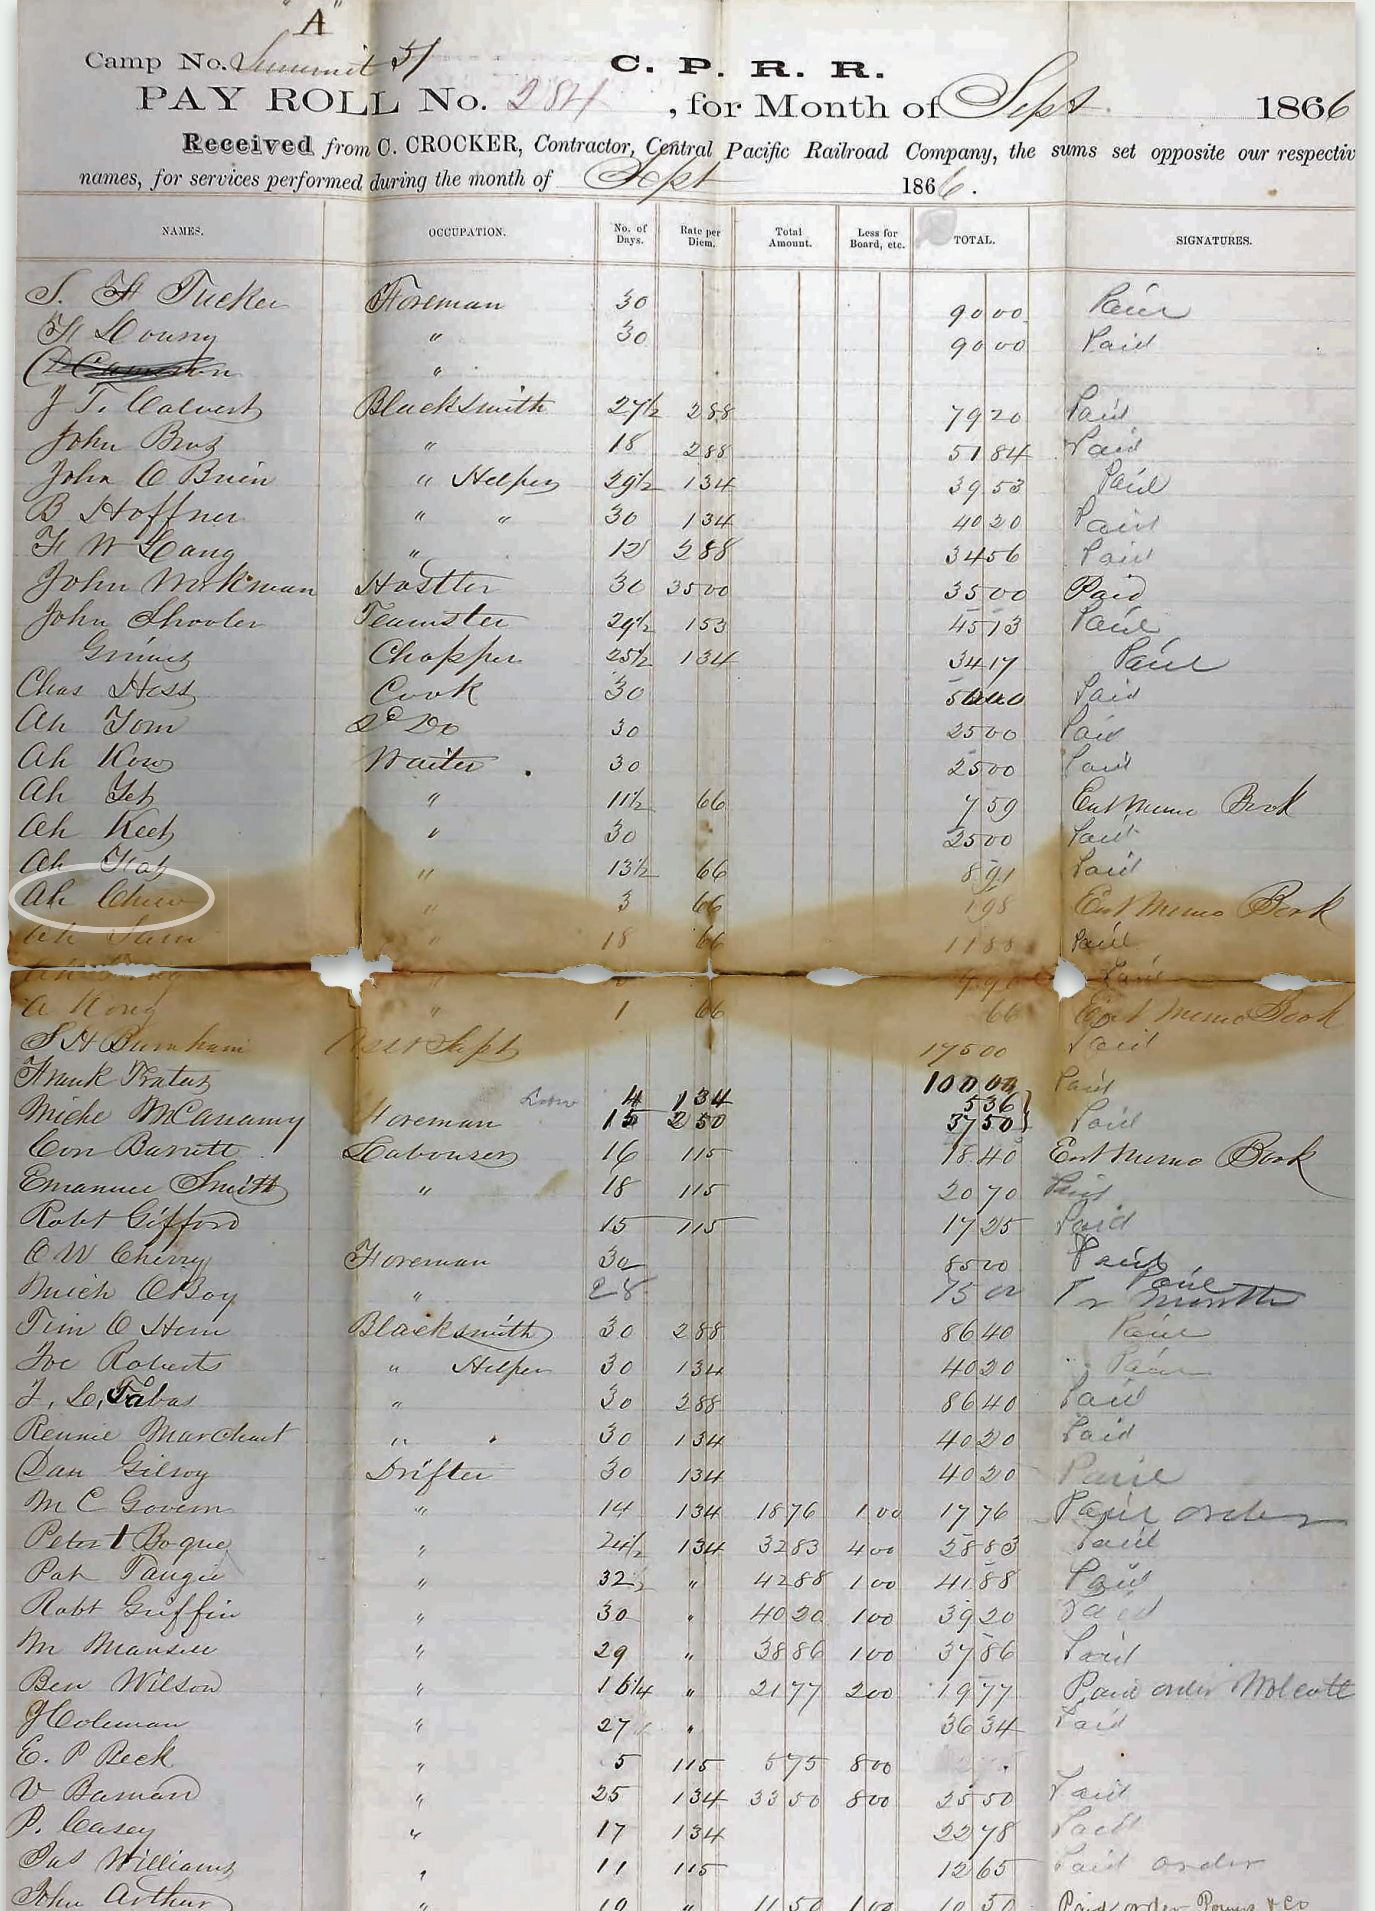 "A"
Camp No. Summit 51 C. P. R. R.
PAY ROLL No. 284, for Month of Sept 1866
Received from C. CROCKER, Contractor, Central Pacific Railroad Company, the sums set opposite our respectiv
names, for services performed during the month of Sept 1866.
NAMES. OCCUPATION. No. of Days. Rate per Diem. Total Amount. Less for Board, etc. TOTAL. SIGNATURES.
S. H Tucker Foreman 30 90 00 Paid
H Young " 30 90 00 Paid
"
J T. Calvert Blacksmith 27½ 288 79 20 Paid
John Bros " 18 288 51 84 Paid
John O Brien " Helper 29½ 134 39 53 Paid
B Hoffner " " 30 134 40 20 Paid
H W Lang " 12 288 34 56 Paid
John Workman Hostler 30 3500 35 00 Paid
John Shooler Teamster 29½ 153 45 13 Paid
Grimes Chopper 25½ 134 34 17 Paid
Chas Hess Cook 30 Paid
Ah Tom Do 30 25 00 Paid
Ah Kow Waiter 30 25 00 Paid
Ah Yet " 11½ 66 7 59 Ent Memo Book
Ah Keet " 30 25 00 Paid
Ah " 13½ 66 8 91 Paid
Ah Chew " 3 66 1 98 Ent Memo Book
Ah Sam " 18 66 11 88 Paid
Ah " Paid
A Kong " 1 66 66 Ent Memo Book
S H Burnham Asst Supt 175 00 Paid
Frank 100 00 Paid
4 134 5 36
Miche McCanamy Foreman 15 250 37 50 Paid
Con Barrett Labourer 16 115 18 40 Ent Memo Book
Emanuel Smith " 18 115 20 70 Paid
Robt Gifford 15 115 17 25 Paid
O W Cherry Foreman 30 85 00 Paid
Mich O Boy " 28 75 00 Paid
month
Tim O Hern Blacksmith 30 288 86 40 Paid
Joe Roberts " Helper 30 134 40 20 Paid
J. L. Tabas " 30 288 86 40 Paid
Rennie Marchant " " 30 134 40 20 Paid
Dan Gilroy Drifter 30 134 40 20 Paid
M C Govern " 14 134 18 76 1 00 17 76 Paid order
Peter Bogue " 24½ 134 32 83 4 00 28 83 Paid
Pat Tangie " 32 " 42 88 1 00 41 88 Paid
Robt Griffin " 30 " 40 20 1 00 39 20 Paid
M Mansell " 29 " 38 86 1 00 37 86 Paid
Ben Wilson " 16¼ " 21 77 2 00 19 77 Paid order Wolcott
J Coleman " 27 " 36 34 Paid
E. P Beck " 5 115 5 75 8 00
V Baman " 25 134 33 50 8 00 25 50 Paid
P. Casey " 17 134 22 78 Paid
Jas Williams " 11 115 12 65 Paid order
John Arthur " 10 " 11 50 1 00 10 50 Paid order & Co